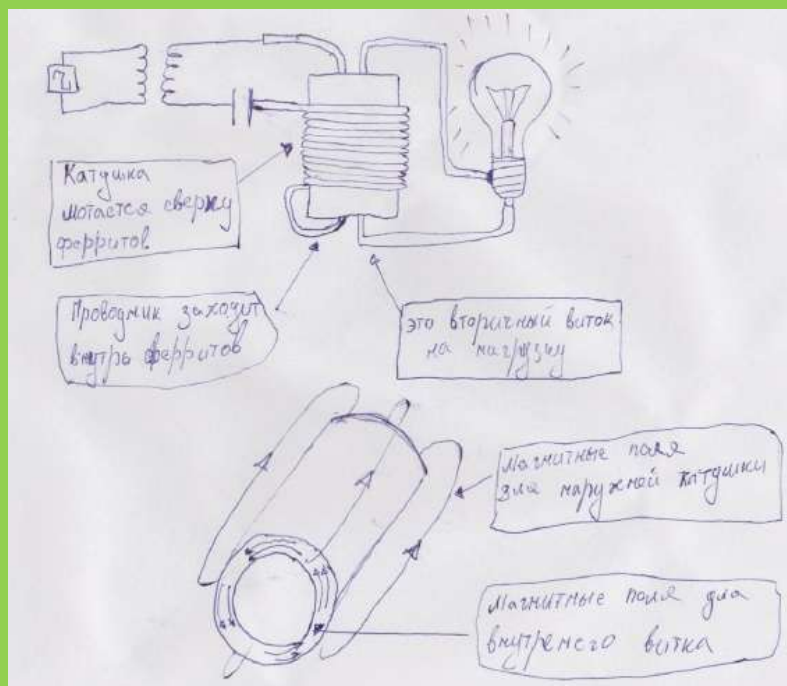 Катушка
мотается сверху
ферритов
Проводник заходит
внутрь ферритов
это вторичный виток
на нагрузку
Магнитные поля
для наружной катушки
Магнитные поля для
внутренего витка